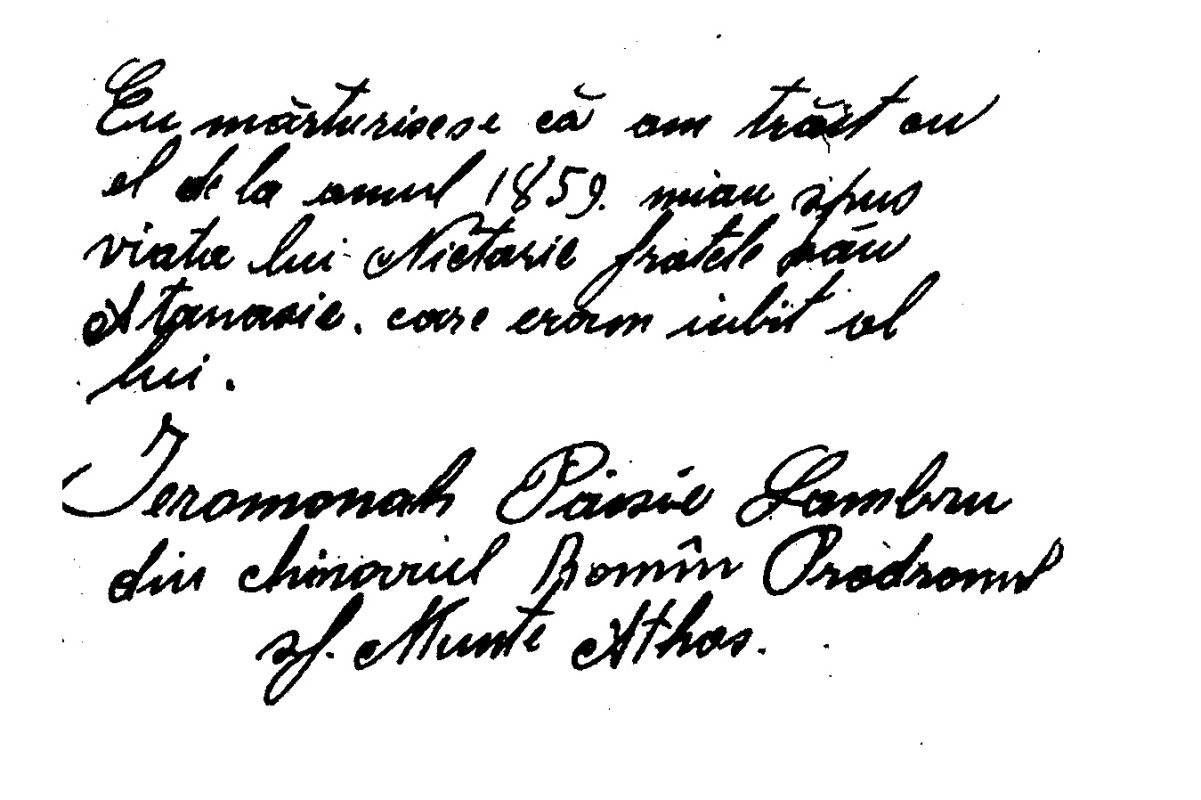 Eu mărturisesc că am trăit cu
el de la anul 1859. miau spus
viata lui Nictarie fratele său
Atanasie. care eram iubit al
lui.
Ieromonah Paisie Lambru
din chinoviul Romîn Prodromul
sf. Munte Athos.